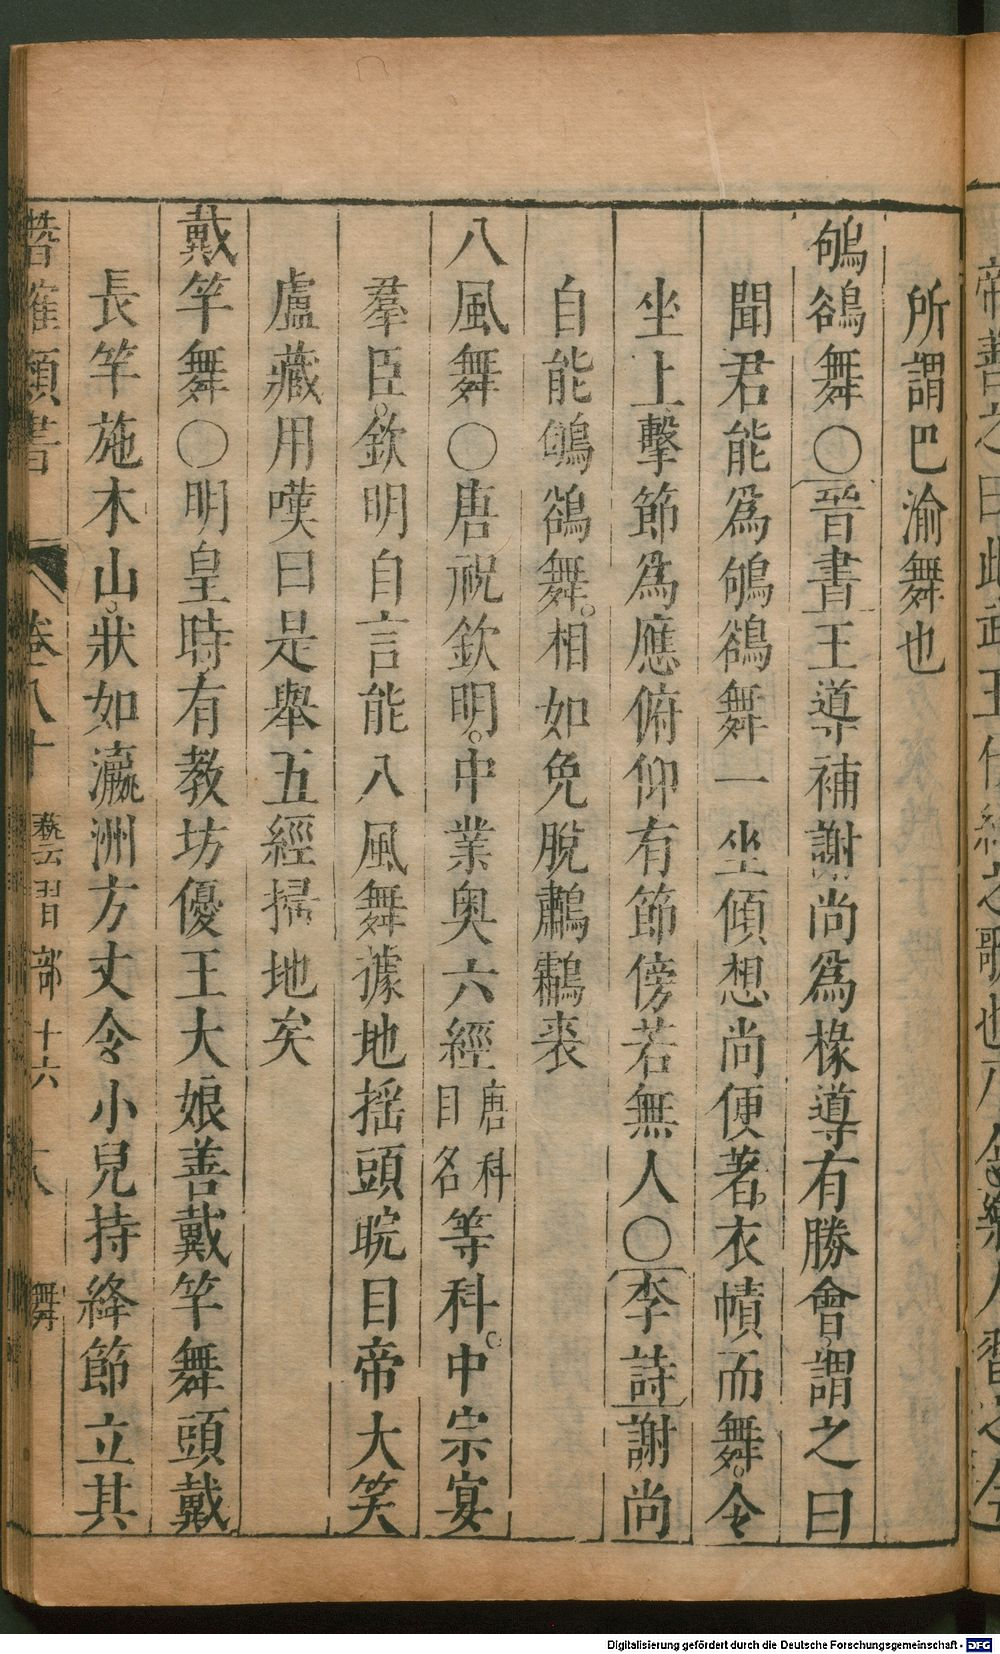 所謂巴渝舞也
鴝鵒舞○晉書王導補謝尚爲椽導有勝會謂之曰
聞君能爲鴝鵒舞一坐傾想尚便著衣幘而舞。令
坐上擊節爲應俯仰有節傍若無人○李詩謝尚
自能鴝鵒舞。相如免脫鷫鸘裘
八風舞○唐祝欽明。中業奥六經唐科目名等科。中宗宴
羣臣。欽明自言能八風舞據地揺頭睆目帝大笑
盧藏用嘆曰是舉五經掃地矣
戴竿舞○明皇時有教坊優王大娘善戴竿舞頭戴
長竿施木山。狀如瀛洲方丈令小兒持絳節立其
類書 卷八十 藝習部 十六 舞
Digitalisierung gefördert durch die Deutsche Forschungsgemeinschaft - DFG